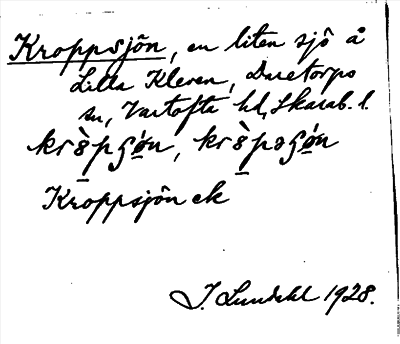 Kroppsjön, en liten sjö å
Lilla Kleven, Daretorps
sn, Vartofta hd, Skarab. l.
Kroppsjön ek
J. Lundahl 1928.